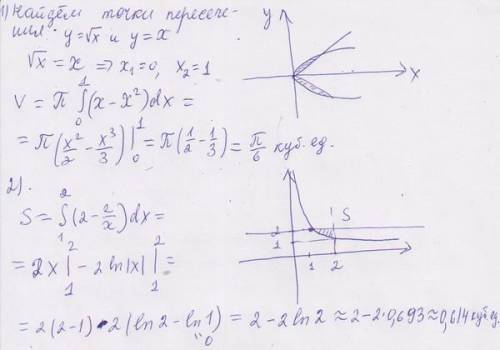 1) Найдём точки пересече-
ния y=√x и y=x
√x = x => x₁=0, x₂=1
V = π ∫₀¹ (x - x²)dx =
= π(x²/2 - x³/3)|₀¹ = π(1/2 - 1/3) = π/6 куб.ед.
y
x
2).
S = ∫₁² (2 - 2/x)dx =
= 2x|₁² - 2 ln|x| |₁² =
= 2(2-1) - 2(ln 2 - ln 1) = 2 - 2 ln 2 ≈ 2 - 2·0,693 ≈ 0,614 куб.ед.
0
S
2
1
1 2